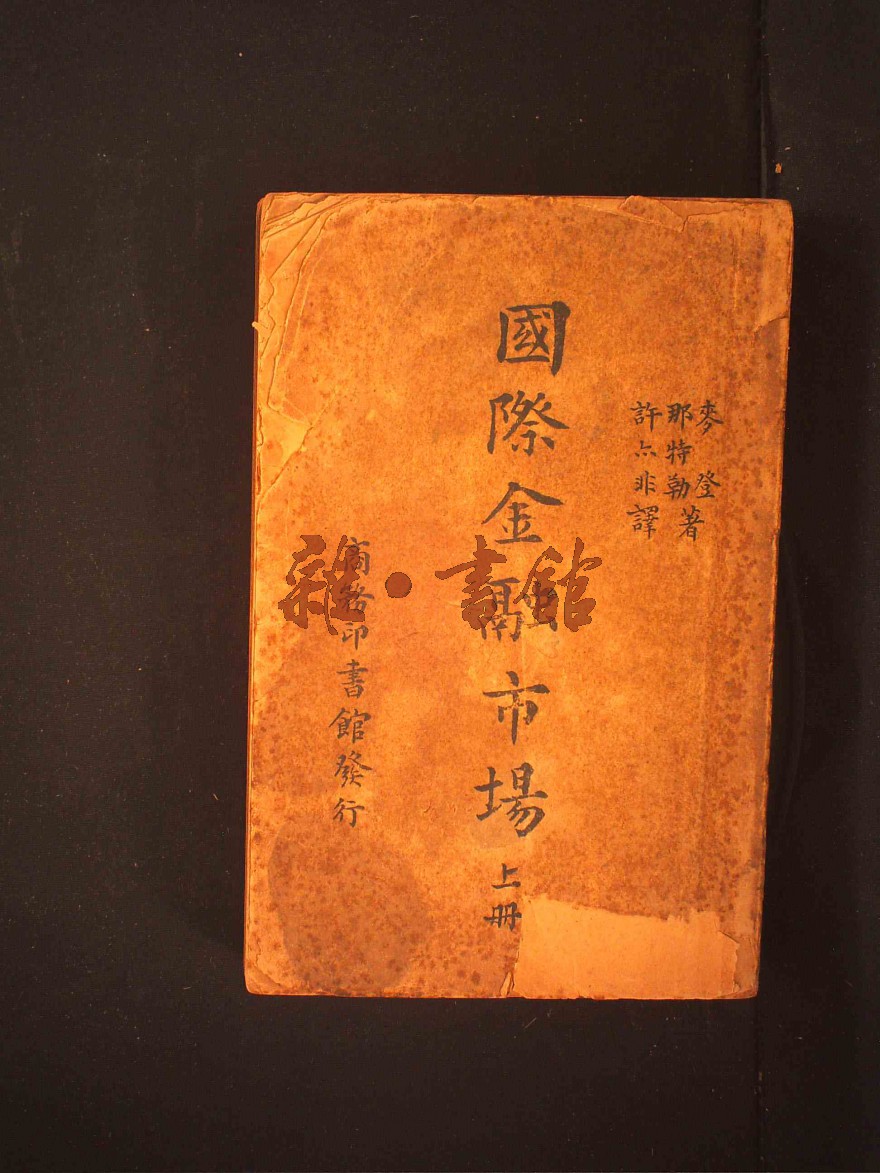 麥登
那特勒著
許亦非譯
國際金融市場上册
商務印書館發行
雜·書館